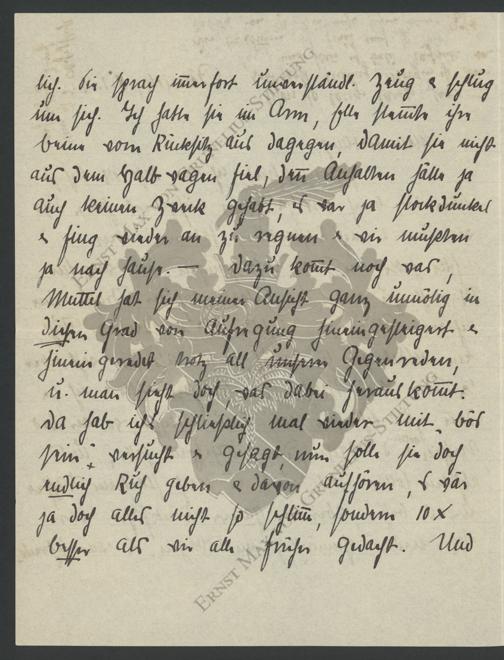 lich. Sie sprach immerfort unverständl. Zeug & schlug
um sich. Ich hatte sie im Arm, Elle stemmte ihre
beine vom Rücksitz aus dagegen, damit sie nicht
aus dem Halbwagen fiel, den Anhalten hätte ja
auch keinen Zweck gehabt, es war ja stockdunkel
& fing wieder an zu regnen & wir mußten
ja nach Hause. — Dazu kom̅t noch was,
Mutter hat sich meiner Ansicht ganz unnötig in
diesen Grad von Aufregung hineingesteigert &
hineingeredet trotz all unserer Gegenreden,
u. man sieht doch was dabei herauskom̅t.
Da hab ich's schließlich mal wieder mit „bös
sein" versucht & gesagt, nun solle sie doch
endlich Ruh geben & davon aufhören, es wär
ja doch alles nicht so schlim̅, sondern 10 x
besser als wir alle früher gedacht. Und
ERNST MAX VON GRUNELIUS-STIFTUNG
ERNST MAX VON GRUNELIUS-STIFTUNG